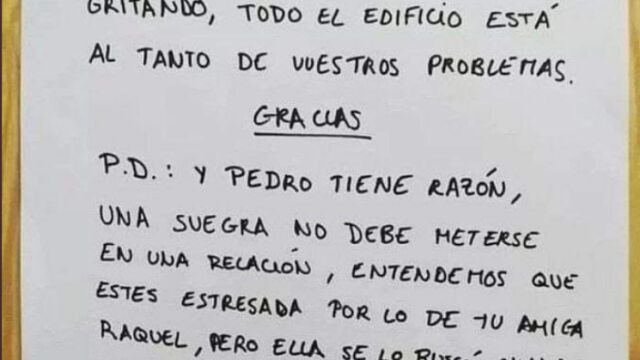 GRITANDO, TODO EL EDIFICIO ESTÁ
AL TANTO DE VUESTROS PROBLEMAS.
GRACIAS
P.D.: Y PEDRO TIENE RAZÓN,
UNA SUEGRA NO DEBE METERSE
EN UNA RELACIÓN, ENTENDEMOS QUE
ESTES ESTRESADA POR LO DE TU AMIGA
RAQUEL, PERO ELLA SE LO